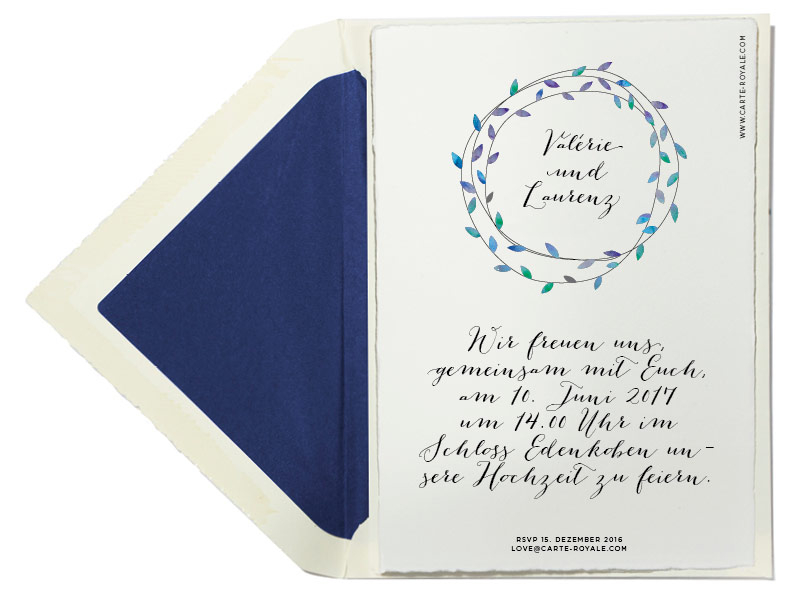 WWW.CARTE-ROYALE.COM
Valérie
und
Laurenz
Wir freuen uns,
gemeinsam mit Euch,
am 10. Juni 2017
um 14.00 Uhr im
Schloss Edenkoben un-
sere Hochzeit zu feiern.
RSVP 15. DEZEMBER 2016
LOVE@CARTE-ROYALE.COM